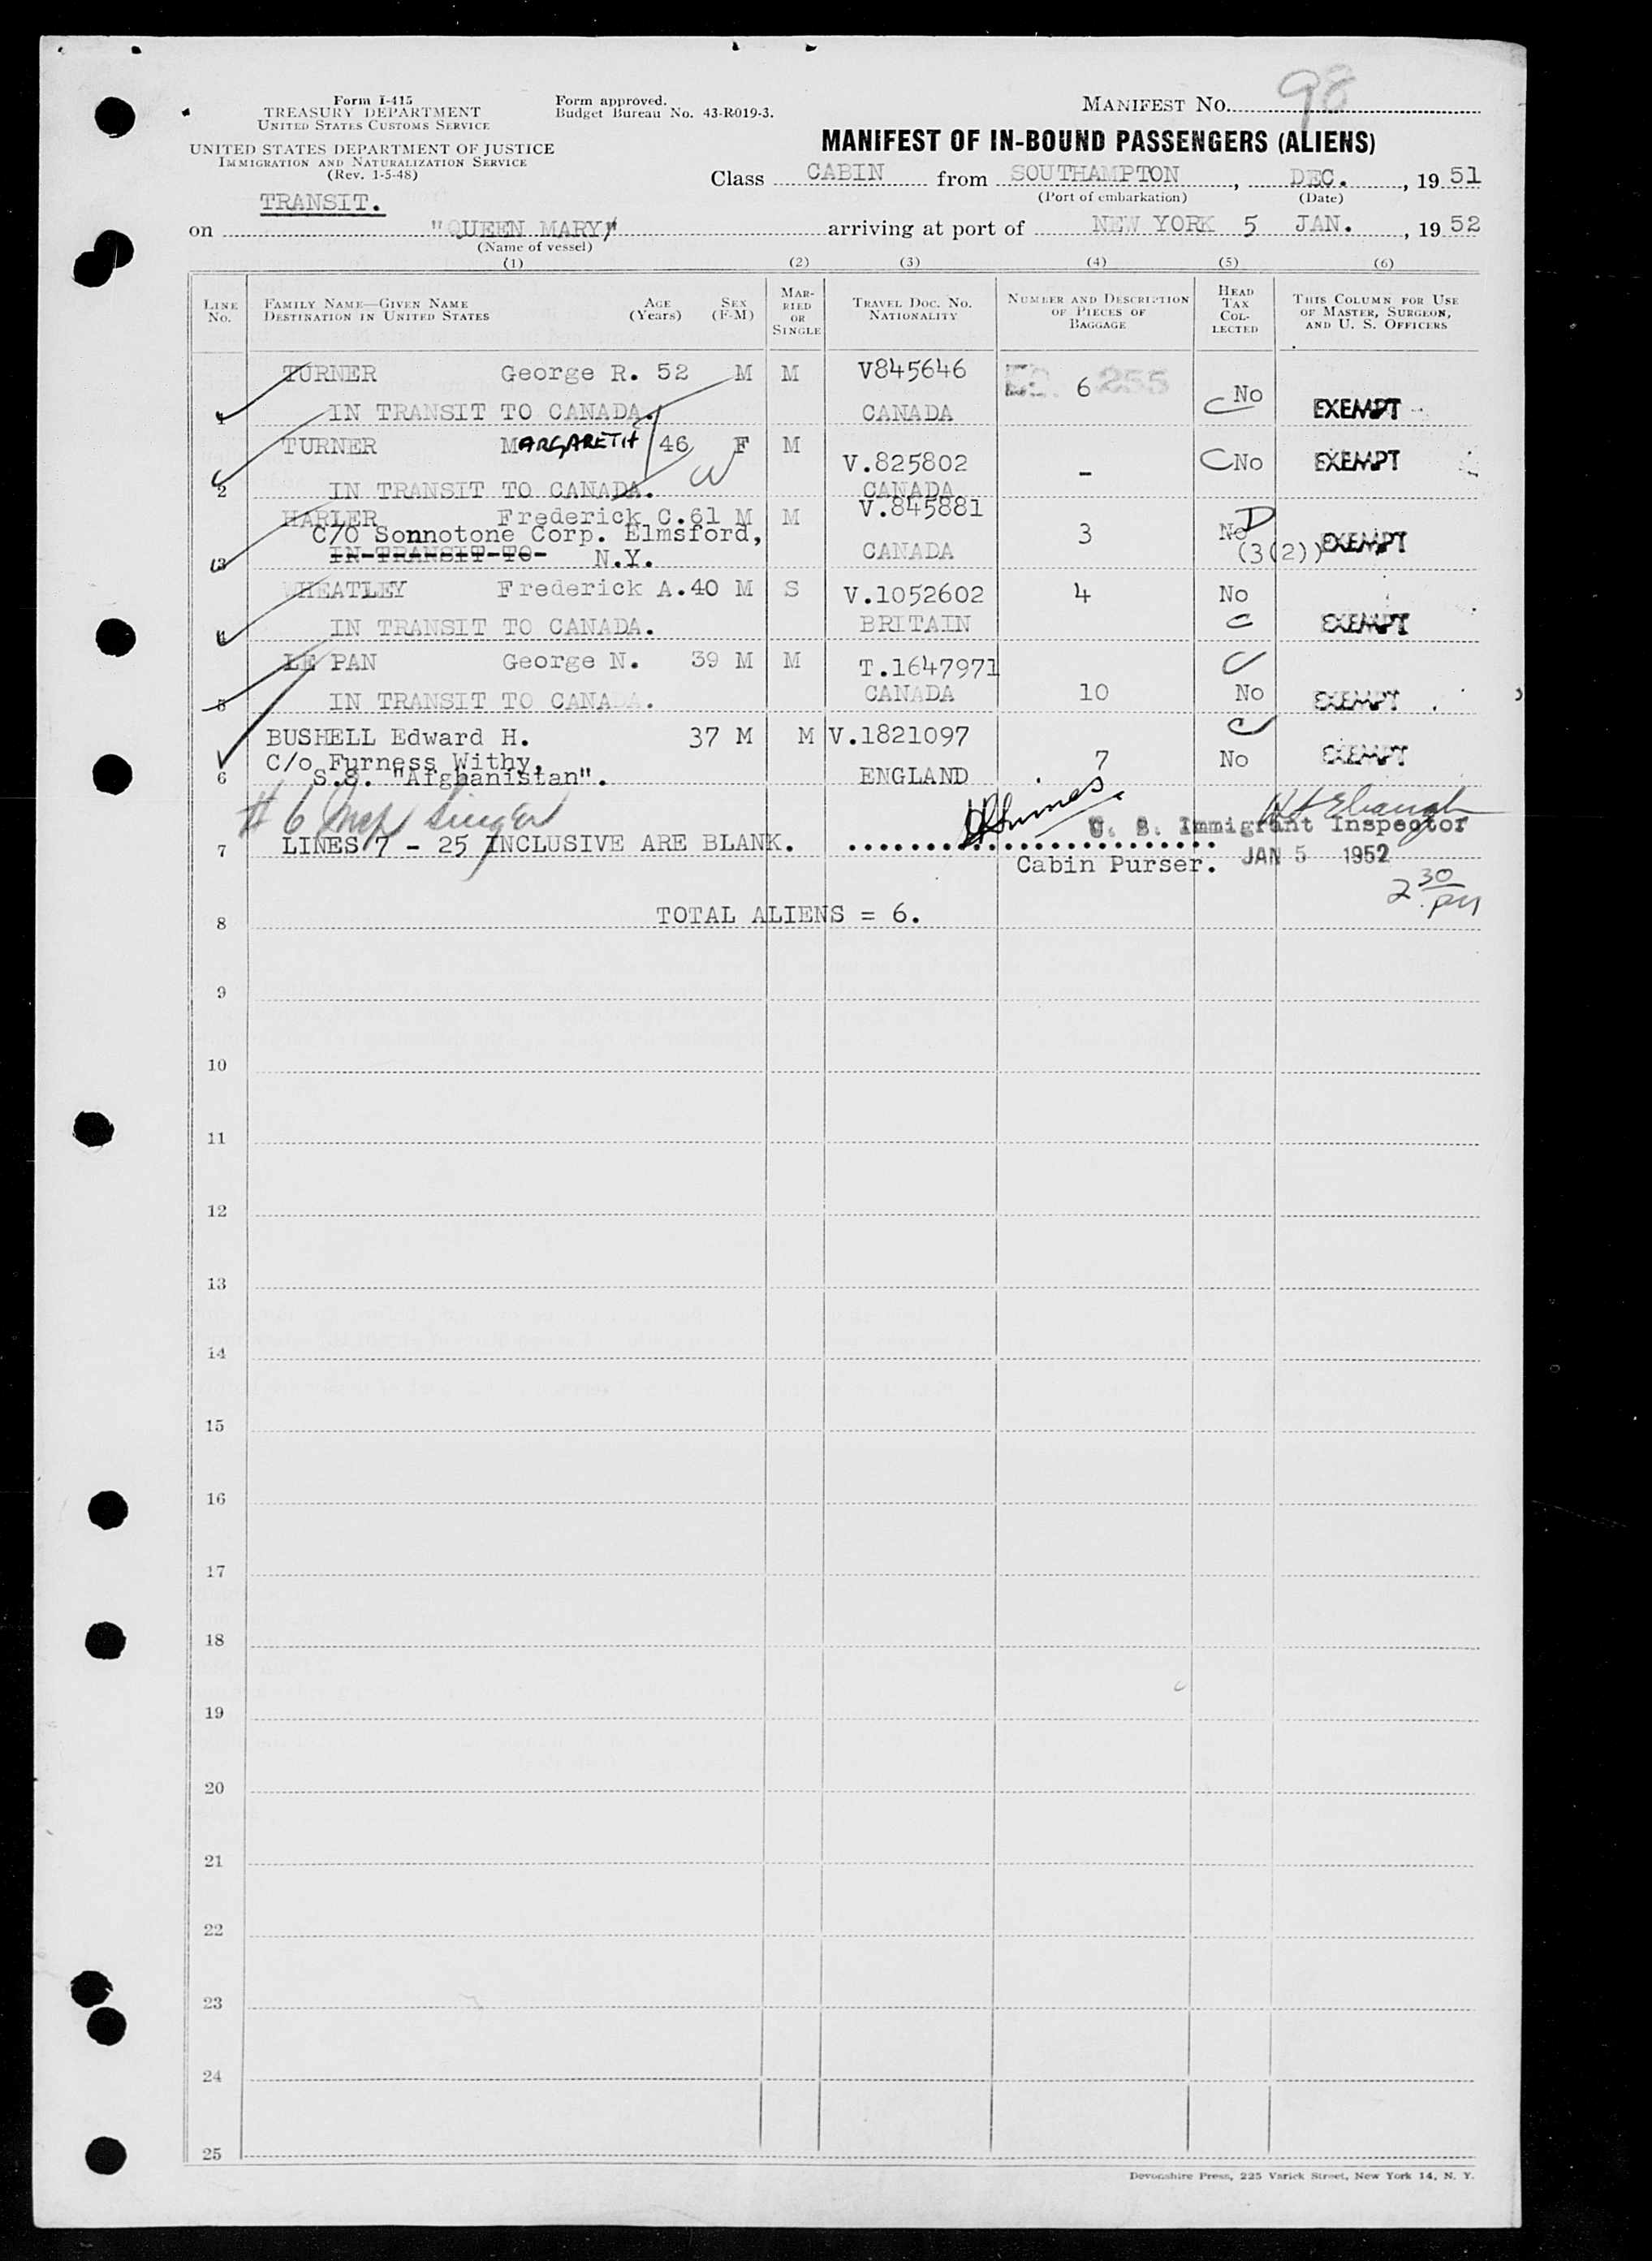 Form I-415
TREASURY DEPARTMENT
UNITED STATES CUSTOMS SERVICE
UNITED STATES DEPARTMENT OF JUSTICE
IMMIGRATION AND NATURALIZATION SERVICE
(Rev. 1-5-48)
Form approved.
Budget Bureau No. 43-R019-3.
MANIFEST NO. 98
MANIFEST OF IN-BOUND PASSENGERS (ALIENS)
Class CABIN from SOUTHAMPTON, DEC., 19 51
(Port of embarkation) (Date)
TRANSIT.
on "QUEEN MARY" arriving at port of NEW YORK 5 JAN., 19 52
(Name of vessel)
(1) (2) (3) (4) (5) (6)
LINE NO. FAMILY NAME—GIVEN NAME DESTINATION IN UNITED STATES AGE (Years) SEX (F-M) MARRIED OR SINGLE TRAVEL DOC. NO. NATIONALITY NUMBER AND DESCRIPTION OF PIECES OF BAGGAGE HEAD TAX COLLECTED THIS COLUMN FOR USE OF MASTER, SURGEON, AND U. S. OFFICERS
TURNER George R. 52 M M V845646 6 255 No
1 IN TRANSIT TO CANADA. CANADA C EXEMPT
TURNER MARGARETH 46 F M V.825802 - C No EXEMPT
2 IN TRANSIT TO CANADA. CANADA
HARLER Frederick C. 61 M M V.845881 3 No D
C/O Sonnotone Corp. Elmsford,
3 IN-TRANSIT-TO- N.Y. CANADA (3(2)) EXEMPT
WHEATLEY Frederick A. 40 M S V.1052602 4 No
4 IN TRANSIT TO CANADA. BRITAIN C EXEMPT
LE PAN George N. 39 M M T.1647971 C
5 IN TRANSIT TO CANADA. CANADA 10 No EXEMPT
BUSHELL Edward H. 37 M M V.1821097 C
C/o Furness Withy, 7 No EXEMPT
6 S.S. "Afghanistan". ENGLAND
# 6
U. S. Immigrant Inspector
7 LINES 7 - 25 INCLUSIVE ARE BLANK. ........................
Cabin Purser. JAN 5 1952
2 30 PM
8 TOTAL ALIENS = 6.
9
10
11
12
13
14
15
16
17
18
19
20
21
22
23
24
25
Devonshire Press, 225 Varick Street, New York 14, N. Y.